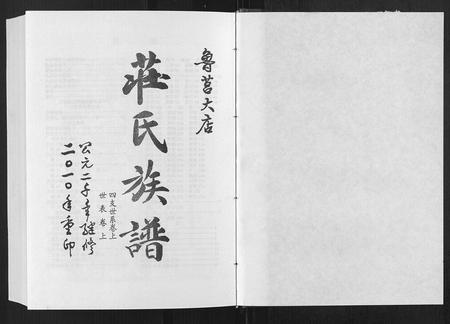 魯莒大店
莊氏族譜
四支世系卷上
世表卷上
公元二千年續修
二〇一〇年重印